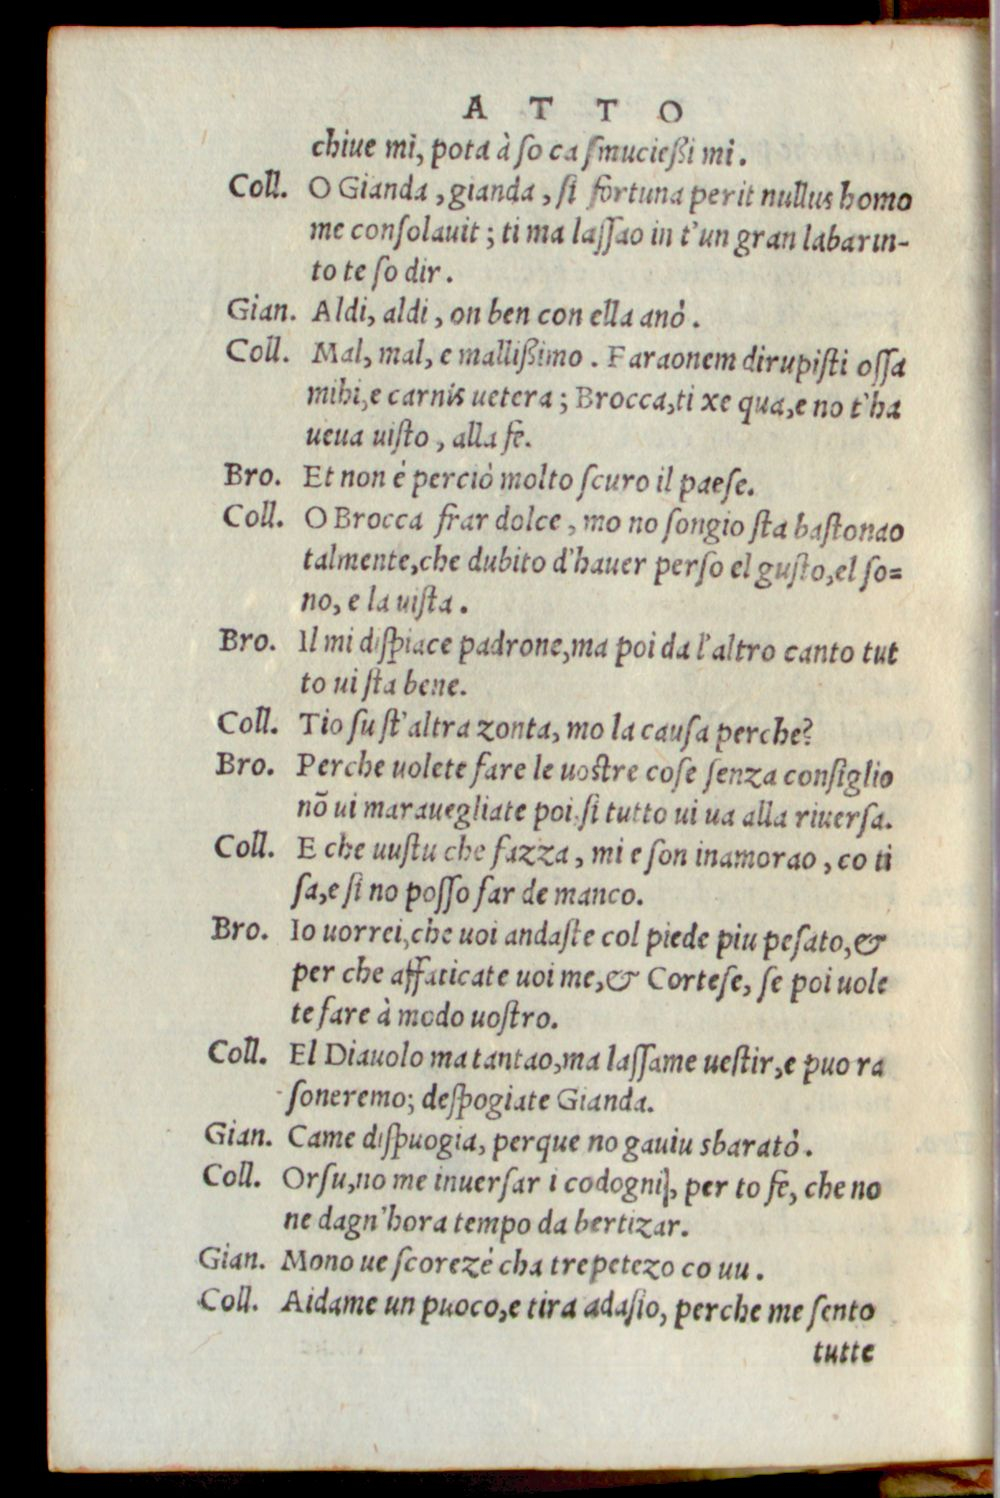 A T T O
chiue mi, pota à ſo ca ſmucießi mi.
Coll. O Gianda, gianda, ſi fortuna perit nullus homo
me conſolauit; ti ma laſſao in t'un gran labarin-
to te ſo dir.
Gian. Aldi, aldi, on ben con ella anò.
Coll. Mal, mal, e mallißimo. Faraonem dirupiſti oſſa
mihi, e carnis uetera; Brocca, ti xe qua, e no t'ha
ueua uiſto, alla fe.
Bro. Et non é perciò molto ſcuro il paeſe.
Coll. O Brocca frar dolce, mo no ſongio ſta baſtonao
talmente, che dubito d'hauer perſo el guſto, el ſo=
no, e la uiſta.
Bro. Il mi diſpiace padrone, ma poi da l'altro canto tut
to ui ſta bene.
Coll. Tio ſu ſt'altra zonta, mo la cauſa perche?
Bro. Perche uolete fare le uoſtre coſe ſenza conſiglio
nō ui marauegliate poi, ſi tutto ui ua alla riuerſa.
Coll. E che uuſtu che fazza, mi e ſon inamorao, co ti
ſa, e ſi no poſſo far de manco.
Bro. Io uorrei, che uoi andaſte col piede piu peſato, &
per che affaticate uoi me, & Corteſe, ſe poi uole
te fare à modo uoſtro.
Coll. El Diauolo ma tantao, ma laſſame ueſtir, e puo ra
ſoneremo; deſpogiate Gianda.
Gian. Came diſpuogia, perque no gauiu sbaratò.
Coll. Orſu, no me inuerſar i codogni, per to fe, che no
ne dagn'hora tempo da bertizar.
Gian. Mono ue ſcorezé cha trepetezo co uu.
Coll. Aidame un puoco, e tira adaſio, perche me ſento
tutte